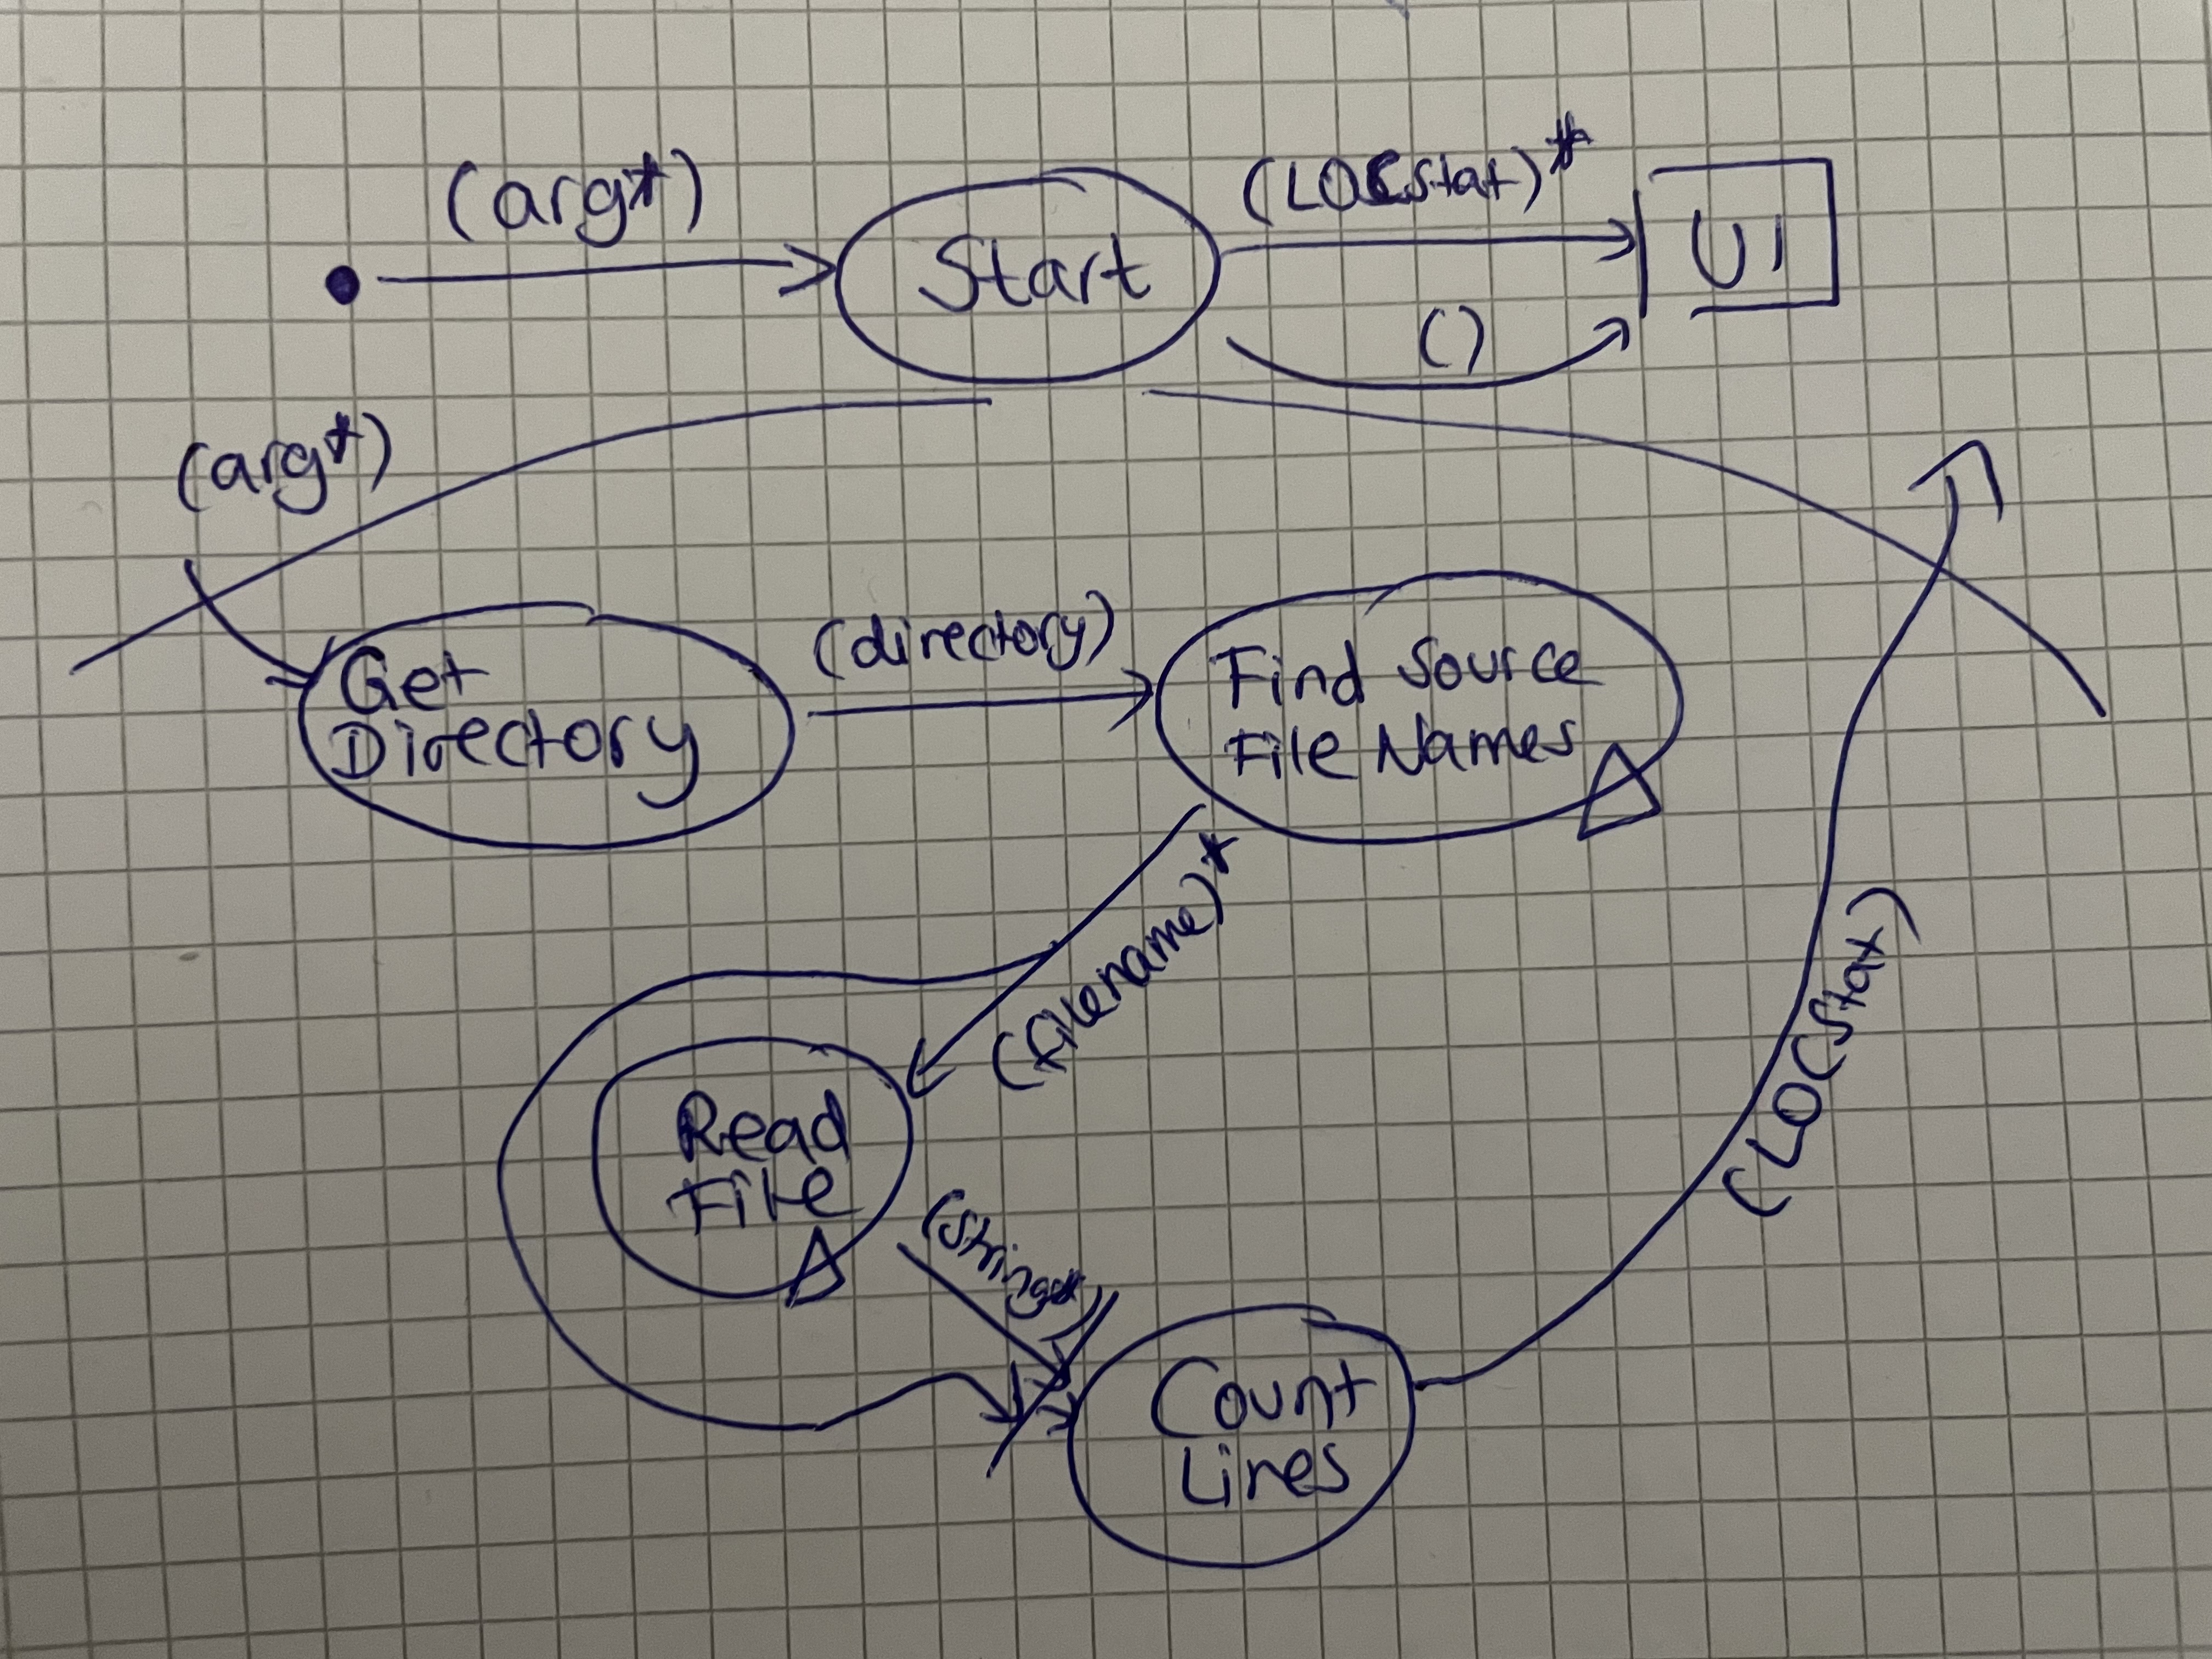 (arg*)
Start
(LOCStat)*
UI
()
(arg*)
Get
Directory
(directory)
Find Source
File Names
(filename)*
Read
File
(String*)
Count
Lines
(LOCStat)